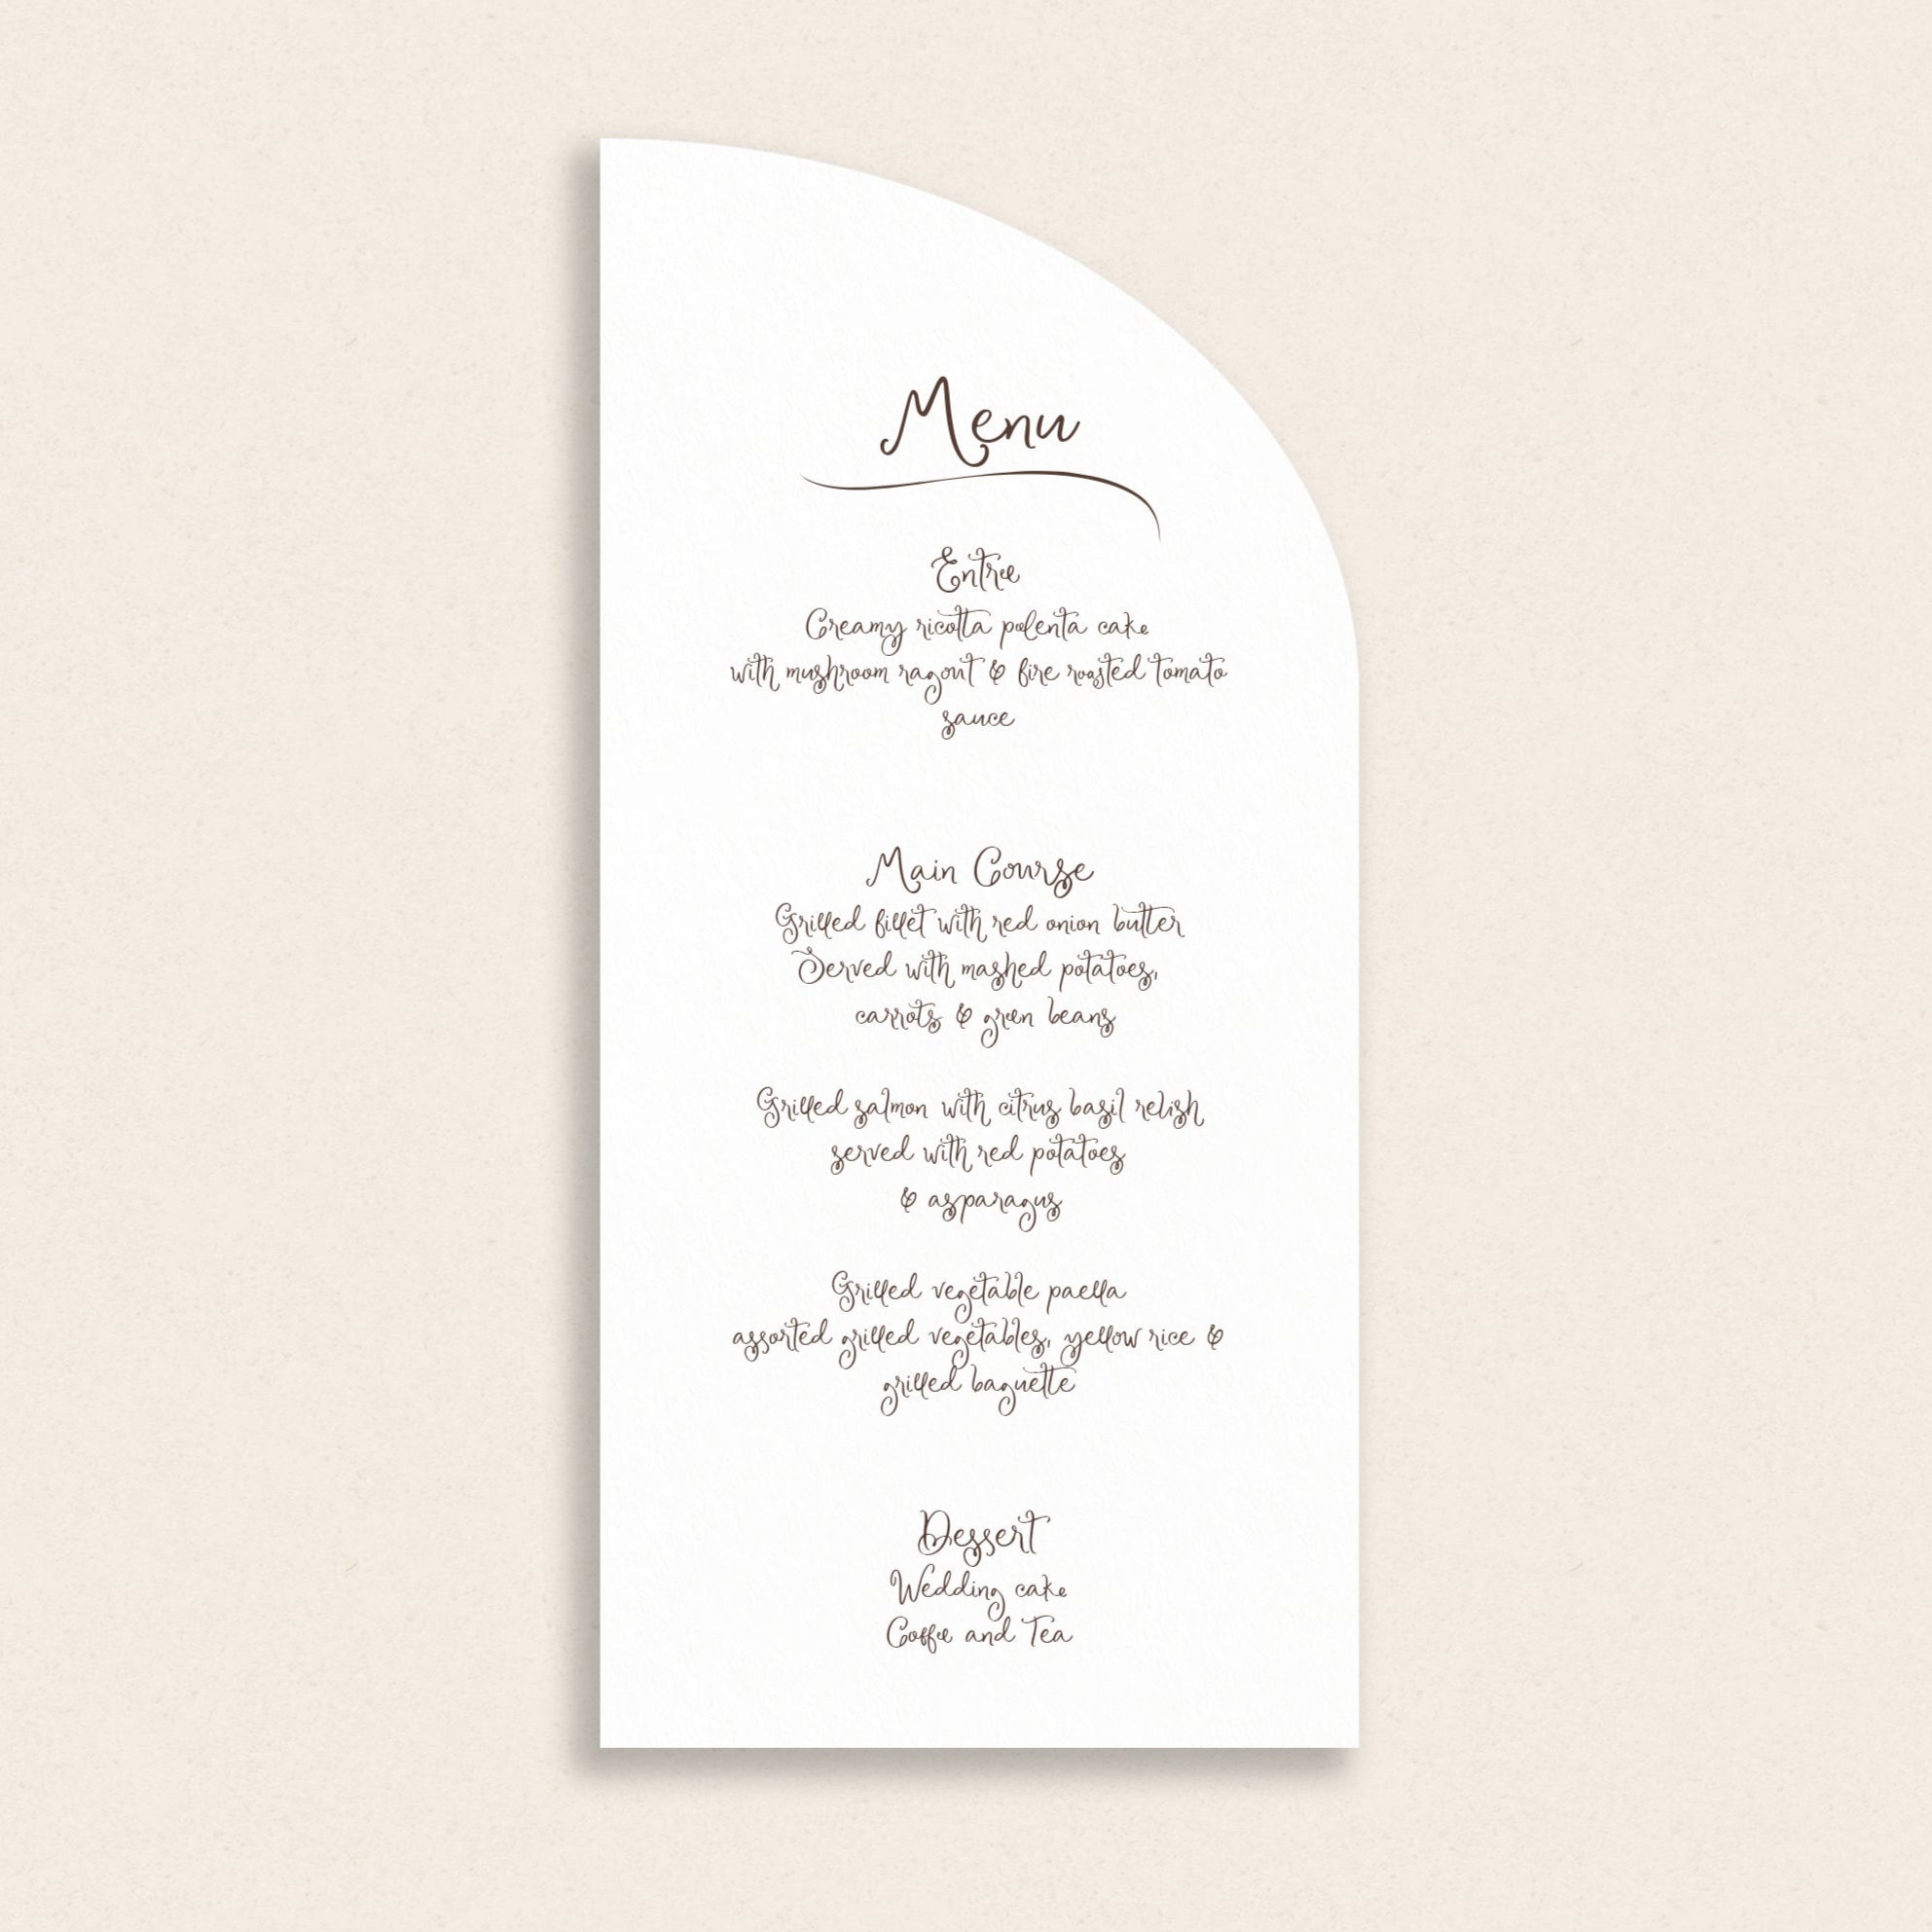 Menu
Entree
Creamy ricotta polenta cake
with mushroom ragout & fire roasted tomato
sauce
Main Course
Grilled fillet with red onion butter
Served with mashed potatoes,
carrots & green beans
Grilled salmon with citrus basil relish
served with red potatoes
& asparagus
Grilled vegetable paella
assorted grilled vegetables, yellow rice &
grilled baguette
Dessert
Wedding cake
Coffee and Tea